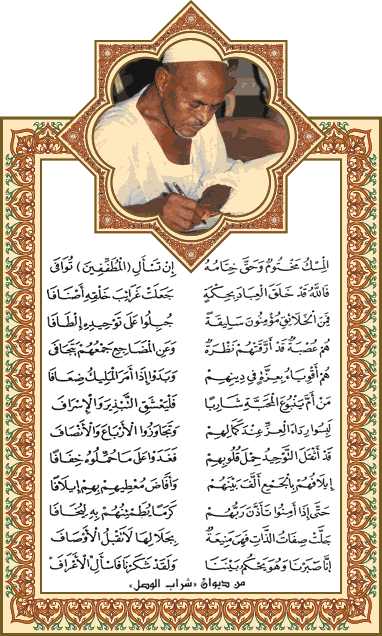 المِسْكُ مَخْتُومٌ وَحَقَّ خِتَامُهُ إِنْ تَسْأَلِ (المُطَفِّفِينَ) تُوَافَى
فَاللهُ قَدْ خَلَقَ العِبَادَ بِحِكْمَةٍ جَعَلَتْ غَرَائِبَ خَلْقِهِ أَصْنَافَا
فَمِنَ الخَلَائِقِ مُؤْمِنُونَ سَلِيقَةً جُبِلُوا عَلَى تَوْحِيدِهِ إِلْطَافَا
هُمْ عُصْبَةٌ قَدْ أَرَّقَتْهُمْ نَظْرَةٌ وَعَنِ المَضَاجِعِ جَمْعُهُمْ يَتَجَافَى
هُمْ أَقْوِيَاءُ بِعِزَّةٍ فِي دِينِهِمْ وَبَدَوْا إِذَا أَمَرَ المَلِيكُ ضِعَافَا
مَنْ أَمَّ يَنْبُوعَ المَحَبَّةِ شَارِبًا فَلْيَعْشَقِ التَّبْذِيرَ وَالْإِسْرَافَ
لَبِسُوا رِدَاءَ العِزِّ عِنْدَ كَمَالِهِمْ وَتَجَاوَزُوا الْأَرْبَاعَ وَالْأَنْصَافَ
قَدْ أَثْقَلَ التَّوْحِيدُ حِمْلَ قُلُوبِهِمْ فَعَدَوْا عَلَى مَا حُمِّلُوهُ خِفَافَا
إِيلَافُهُمْ بِالْجَمْعِ أَلَّفَ بَيْنَهُمْ وَأَفَاضَ مُعْطِيهِمْ بِهِمْ إِيلَافَا
حَتَّى إِذَا أَمِنُوا تَأَذَّنَ رَبُّهُمْ كَرَمًا يُطَمْئِنُهُمْ بِهِ
جَلَّتْ صِفَاتُ الذَّاتِ فَهِيَ مَنِيعَةٌ بِجَلَالِهَا لَا تَقْبَلُ الْأَوْصَافَ
إِنَّا صَبَرْنَا وَهُوَ يَحْكُمُ بَيْنَنَا وَلَقَدْ شَكَرْنَا فَاسْأَلِ الْأَعْرَافَ
من ديوان «شراب الوصل»